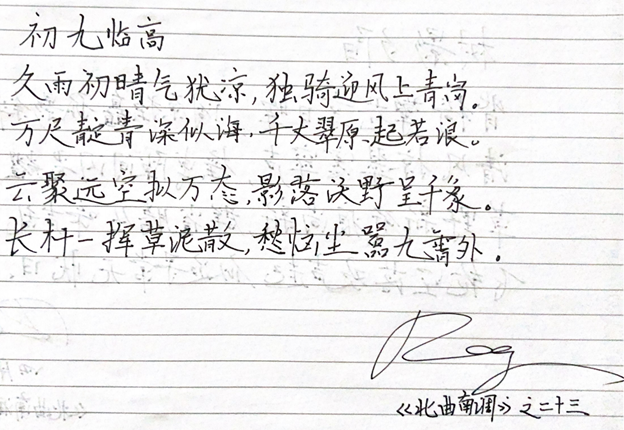 初九临高
久雨初晴气犹凉,独骑迎风上青岗。
万尺靛青深似海,千丈翠原起若浪。
云聚远空拟万态,影落沃野呈千象。
长杆一挥草泥散,愁恼尘嚣九霄外。
Roy
《北曲南调》之二十三